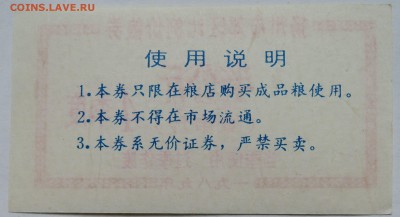 COINS.LAVE.RU
使用说明
1.本券只限在粮店购买成品粮使用。
2.本券不得在市场流通。
3.本券系无价证券，严禁买卖。